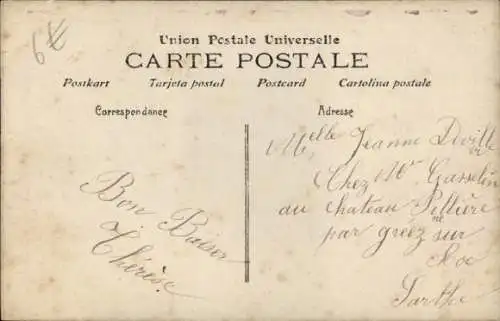 6€
Union Postale Universelle
CARTE POSTALE
Postkart Tarjeta postal Postcard Cartolina postale
Correspondance
Adresse
Bon Baiser
Thérèse
Melle Jeanne Deville
Chez Mr Gasselin
au chateau Pillière
par greez sur
Roc
Sarthe